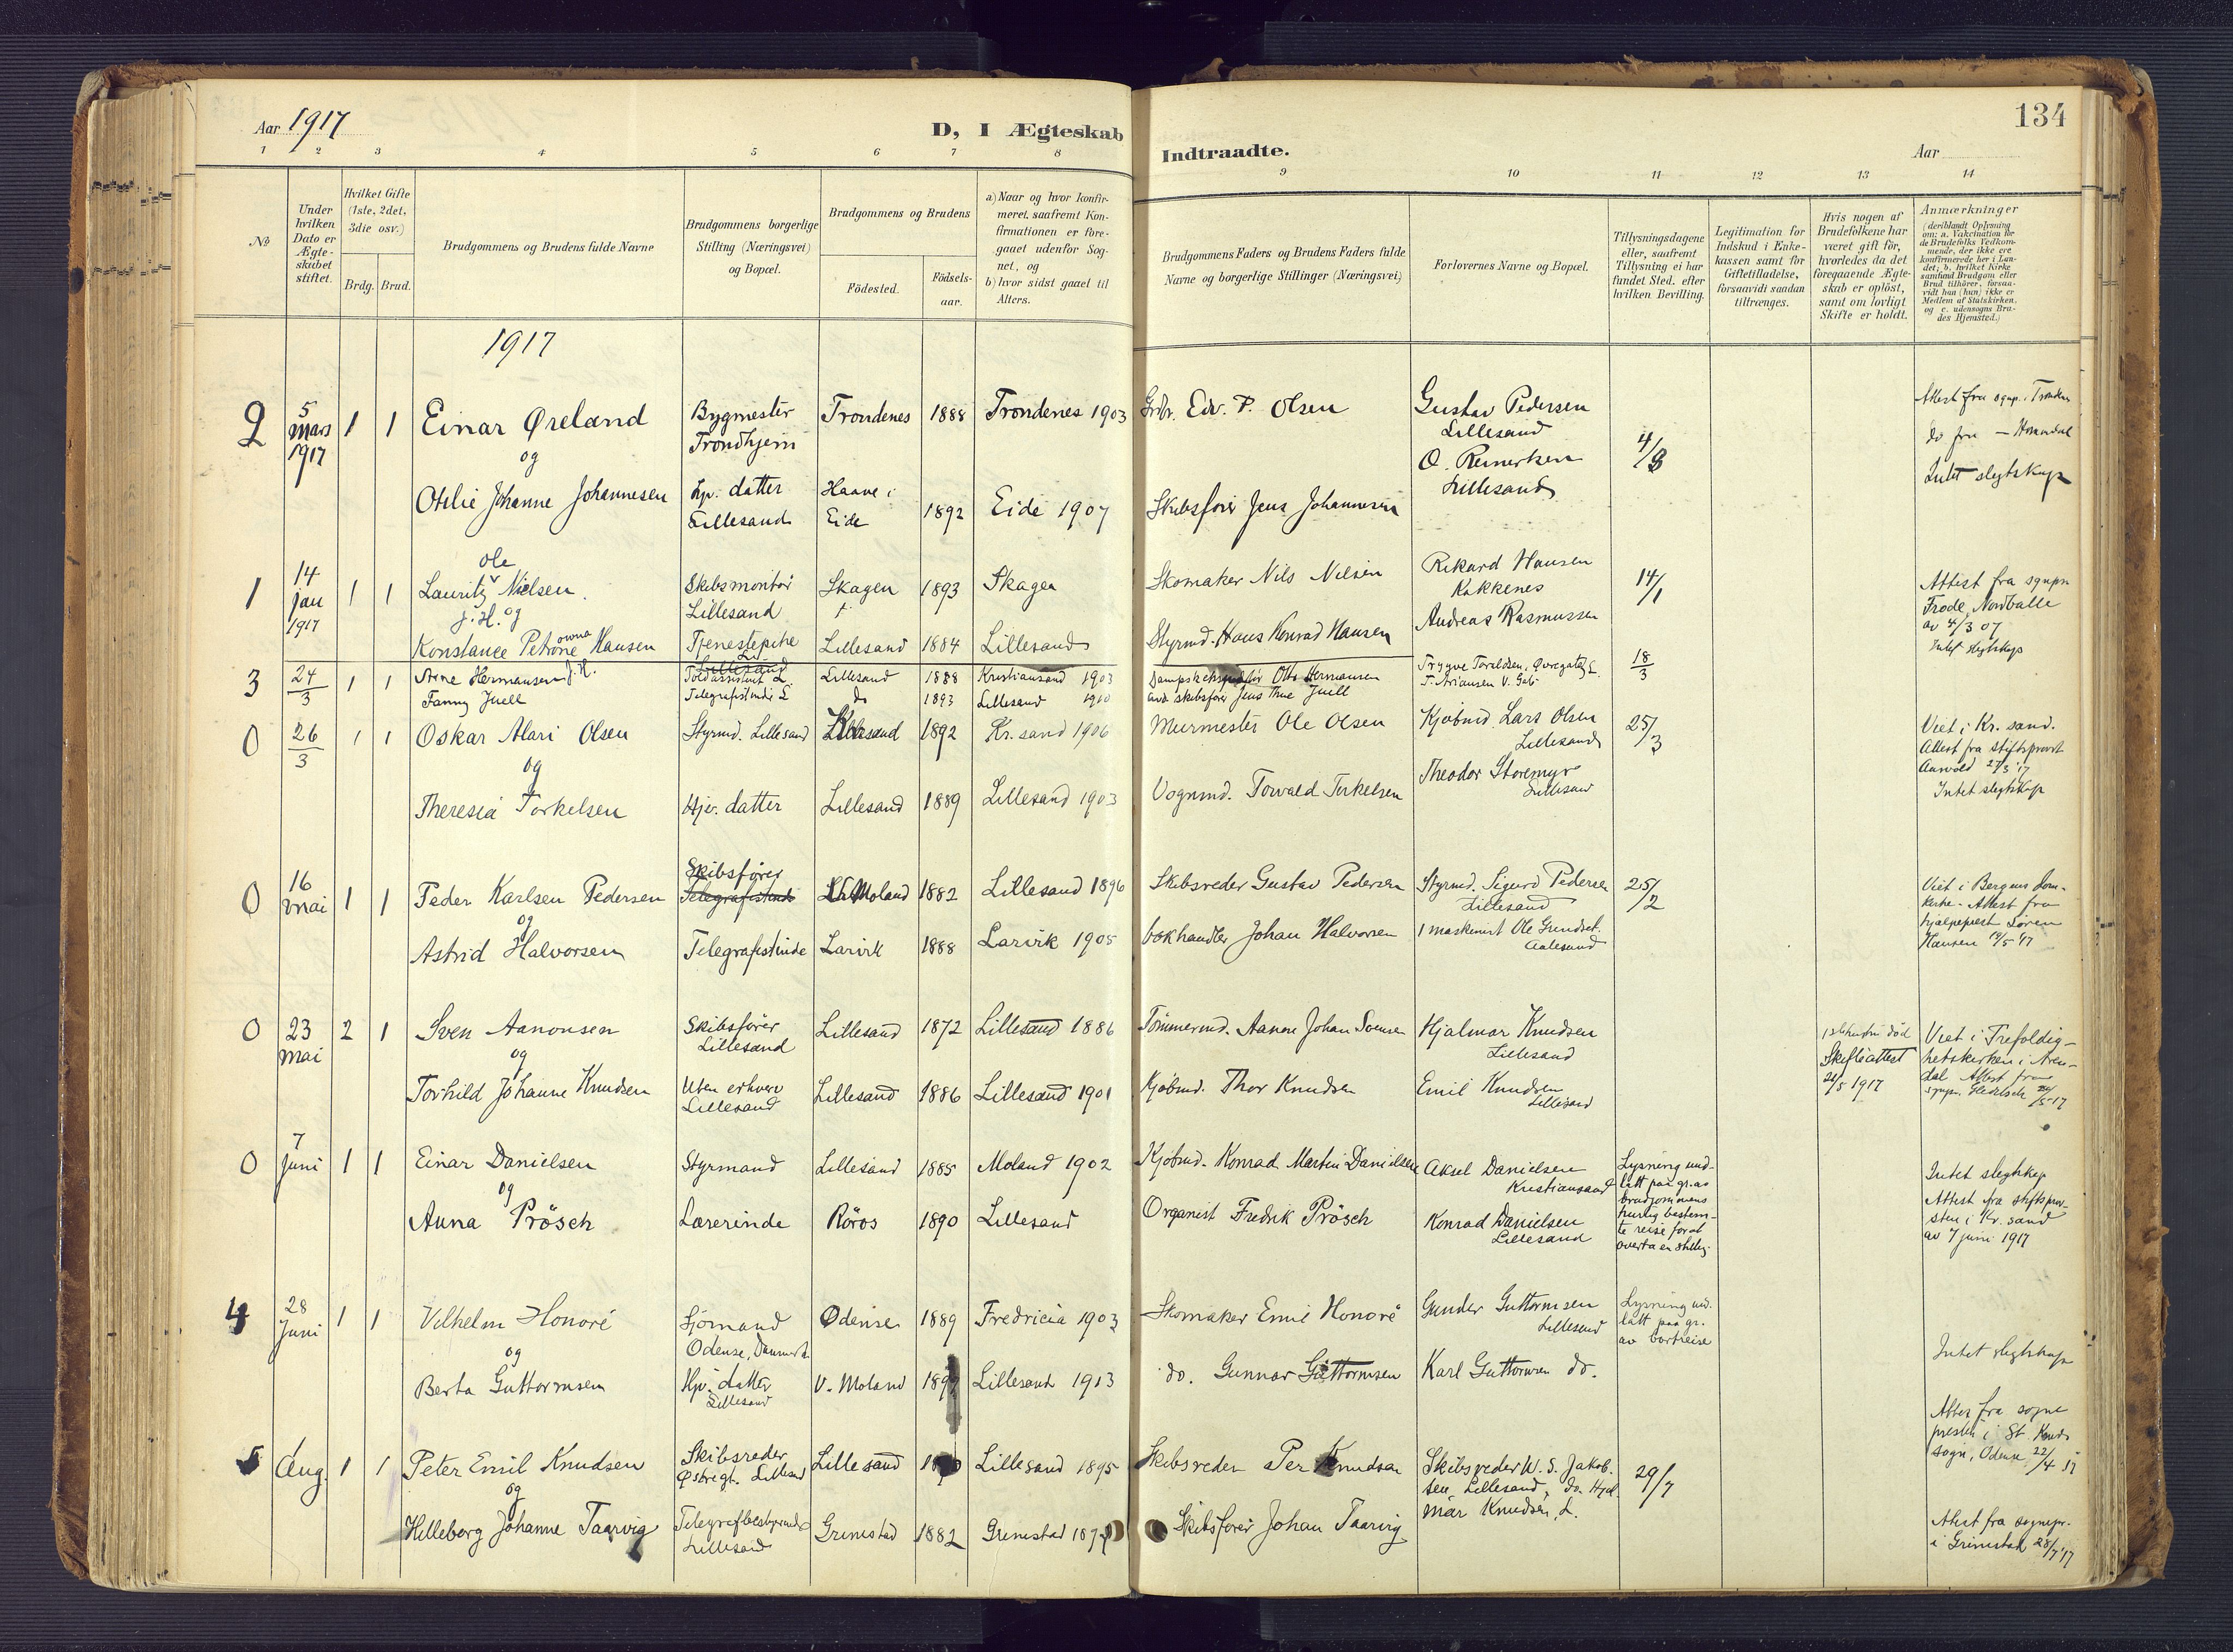 Aar 1917
D, I Ægteskab
Indtraadte.
Aar
134
1 2 3 4 5 6 7 8 9 10 11 12 13 14
№
Under hvilken Dato er Ægteskabet stiftet.
Hvilket Gifte (1ste, 2det, 3die osv.)
Brdg. Brud.
Brudgommens og Brudens fulde Navne
Brudgommens borgerlige Stilling (Næringsvei) og Bopæl.
Brudgommens og Brudens
Födested.
Födsels-aar.
a) Naar og hvor konfirmeret, saafremt Konfirmationen er foregaaet udenfor Sognet, og
b) hvor sidst gaaet til Alters.
Brudgommens Faders og Brudens Faders fulde Navne og borgerlige Stillinger (Næringsvei)
Forlovernes Navne og Bopæl.
Tillysningsdagene eller, saafremt Tillysning ei har fundet Sted, efter hvilken Bevilling.
Legitimation for Indskud i Enkekassen samt for Giftetilladelse, forsaavidt saadan tiltrænges.
Hvis nogen af Brudefolkene har været gift för, hvorledes da det foregaaende Ægteskab er oplöst, samt om lovligt Skifte er holdt.
Anmærkninger (deriblandt Oplysning om: a. Vakcination for de Brudefolks Vedkommende, der ikke ere konfirmerede her i Landet; b. hvilket Kirkesamfund Brudgom eller Brud tilhörer, forsaavidt han (hun) ikke er Medlem af Statskirken, og c. udensogns Brudes Hjemsted.)
1917
2 5 mars 1917 1 1 Einar Øreland Bygmester Trondhjem Trondenes 1888 Trondenes 1903 Grdbr. Edv. P. Olsen Gustav Pedersen Lillesand 4/3 Attest fra sognp. i
og
Otelie Johanne Johannesen Hjv. datter Lillesand Haave i Eide 1892 Eide 1907 Skibsfører Jens Johannesen O. Lillesand Intet slegtskap
1 14 jan 1917 1 1 Lauritz Ole Nielsen Skibsmontør Lillesand Skagen 1893 Skagen Skomaker Nils Nilsen Rikard Hansen Kokkenes 14/1 Attest fra sgnpr
J.H. og
Konstance Petrone Hansen Tjenestepike Lillesand 1884 Lillesand Styrmd. Hans Konrad Hansen Andreas Rasmussen av 4/3 07 Intet slegtskap
3 24/3 1 1 Arne Hermansen J.H. Toldassistent L. Lillesand 1888 Kristiansand 1903 Otto Hermansen 18/3
Fanny Juell Telegrafistinde L. do 1893 Lillesand 1910 skibsfører Jens Thue Juell
0 26/3 1 1 Oskar Alari Olsen Styrmd. Lillesand Lillesand 1892 Kr.sand 1906 Murmester Ole Olsen Kjøbmd. Lars Olsen Lillesand 25/3 Viet i Kr. sand. Attest fra stiftsprovst
og
Theresia Torkelsen Hjv. datter Lillesand 1889 Lillesand 1903 Vognmd. Torvald Terkelsen Theodor Storemyr Lillesand Intet slegtskap
0 16 mai 1 1 Peder Karlsen Pedersen Skibsfører Telegrafistinde Moland 1882 Lillesand 1896 Skibsreder Gustav Pedersen Styrmd. Sigurd Pedersen Lillesand 25/2 Viet i Bergens domkirke. Attest fra hjælpeprest Søren Hansen 19/5 '17
og
Astrid Halvorsen Telegrafistinde Larvik 1888 Larvik 1905 bokhandler Johan Halvorsen 1 maskinist Ole Aalesund
0 23 mai 2 1 Sven Aanonsen Skibsfører Lillesand Lillesand 1872 Lillesand 1886 Tömmermd. Aanon Johan Svensen Hjalmar Knudsen Lillesand 1ste hustru död Skifteattest 21/5 1917 Viet i Trefoldighetskirken i Arendal Attest fra
og
Torhild Johanne Knudsen Uten erhverv Lillesand Lillesand 1886 Lillesand 1901 Kjøbmd. Thor Knudsen Emil Knudsen Lillesand
0 7 juni 1 1 Einar Danielsen Styrmand Lillesand 1885 Moland 1902 Kjøbmd. Konrad Martin Danielsen Aksel Danielsen Kristiansand Lysning undlatt paa gr. av brudgommens hurtig bestemte reise forat overta en stilling. Intet slegtskap
og
Anna Prösch Lærerinde Röros 1890 Lillesand Organist Fredrik Prösch Konrad Danielsen Lillesand Attest fra stiftsprovsten i Kr. sand av 7 juni 1917
4 28 juni 1 1 Vilhelm Honoré Sjømand Odense, Danmark Odense 1889 Fredricia 1903 Skomaker Emil Honoré Gunder Guttormsen Lillesand Lysning undlatt paa gr. av bortreise Intet slegtskap
og
Berta Guttormsen Hjv. datter Lillesand V. Moland Lillesand 1913 do. Gunnar Guttormsen Karl Guttormsen do. Attest fra sognepresten i St. Knuds sogn, Odense 22/4 17
5 1 Aug. 1 1 Peter Emil Knudsen Skibsreder Østregt. Lillesand Lillesand Lillesand 1895 Skibsreder Per Knudsen Skibsreder W. S. Jakobsen, Lillesand, do. Hjalmar Knudsen, L. 29/7
og
Hilleborg Johanne Taarvig Telegrafbestyrerinde Lillesand Grimstad 1882 Grimstad Skibsfører Johan Taarvig Attest fra sognepr. i Grimstad 28/7 '17